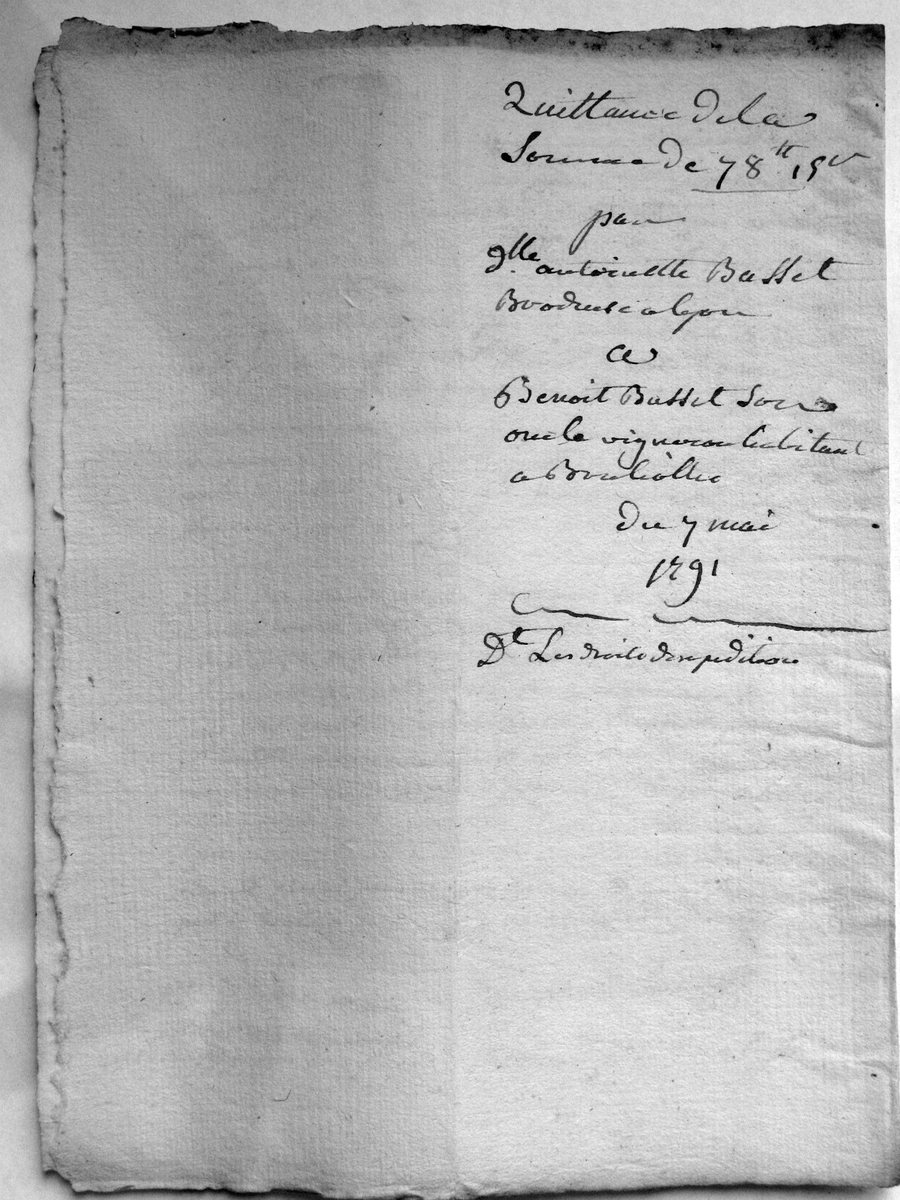 Quittance de la
Somme de 78tt 15s
par
dlle antoinette Basset
Brodeuse a lyon
a
Benoit Basset Son
oncle vigneron habitant
a
du 7 mai
1791
Dt Les droits dexpedition